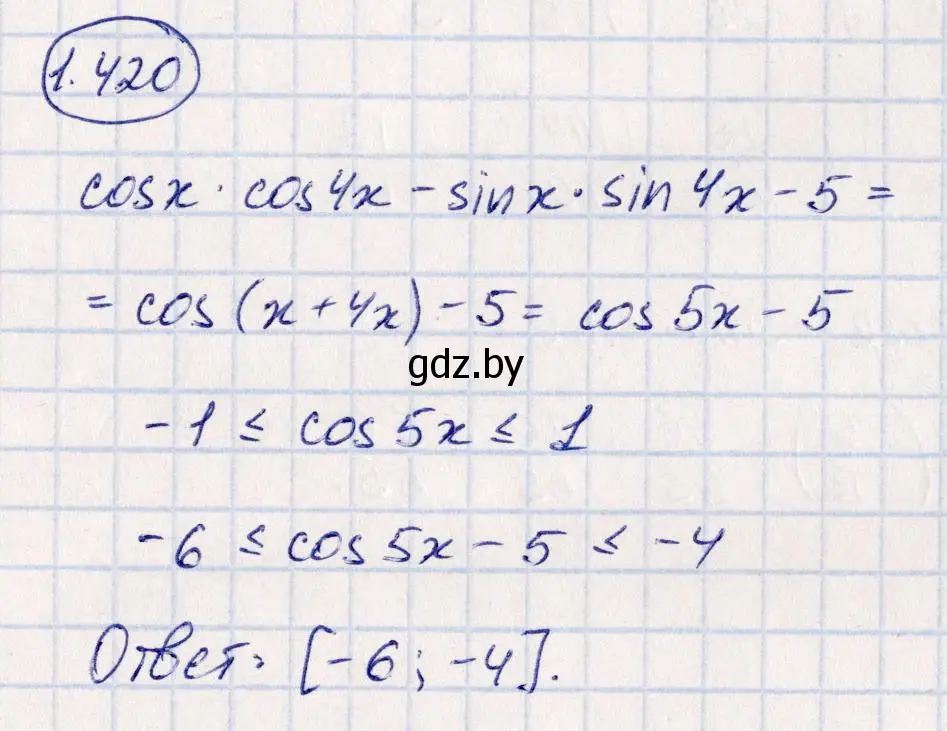 1.420
cosx · cos4x - sinx · sin4x - 5 =
= cos(x + 4x) - 5 = cos5x - 5
gdz.by
-1 ≤ cos5x ≤ 1
-6 ≤ cos5x - 5 ≤ -4
Ответ: [-6; -4].